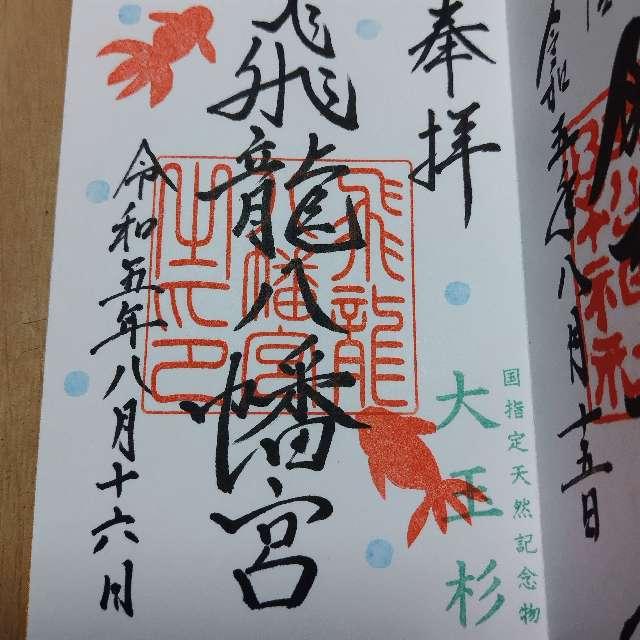 令和五年八月十五日
国指定天然記念物
大王杉
奉拝
飛龍八幡宮
飛龍
八幡宮
之印
令和五年八月十六日